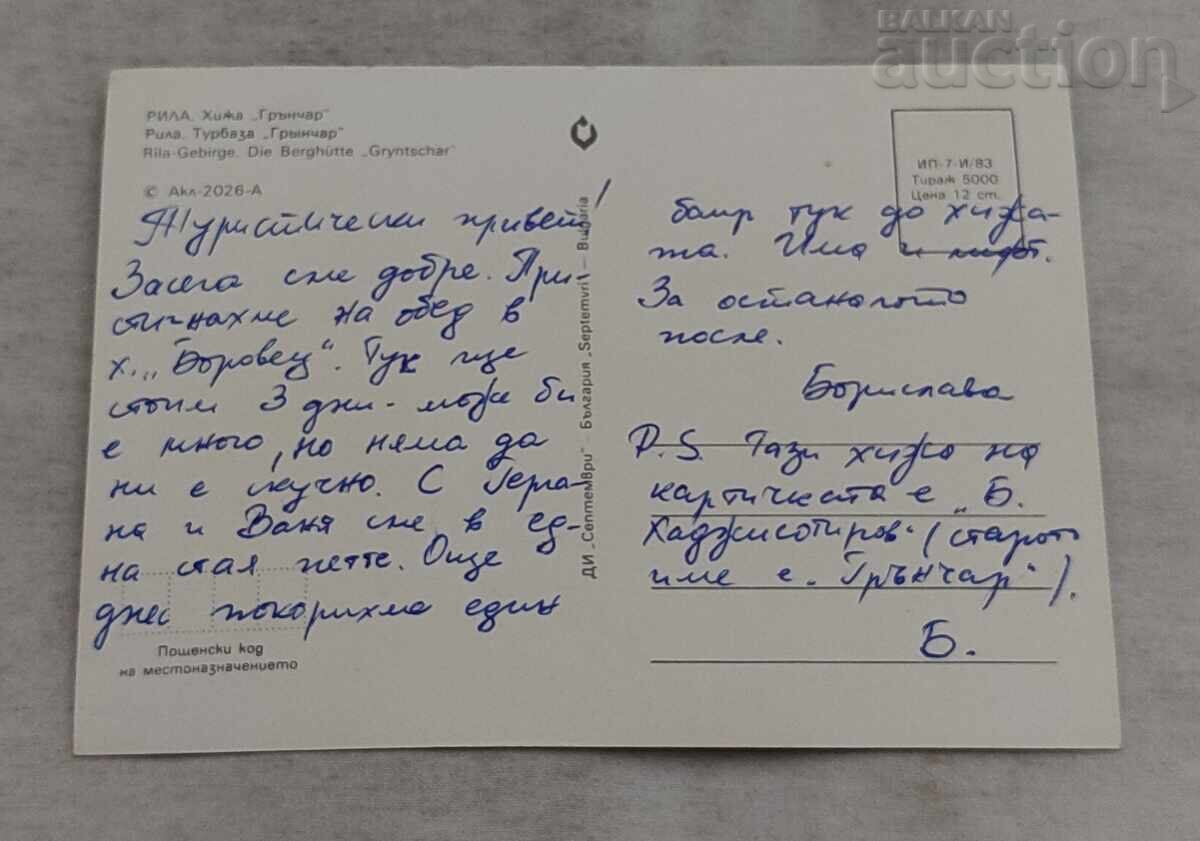 BALKAN
auction
РИЛА. Хижа „Грънчар"
Рила. Турбаза „Грынчар"
Rila-Gebirge. Die Berghütte „Gryntschar"
© Акл-2026-А
Туристически привет!
Засега сме добре. При-
стигнахме на обед в
х. „Боровец". Тук ще
стоим 3 дни - може би
е много, но няма да
ни е скучно. С Герга-
на и Ваня сме в ед-
на стая петте. Още
днес покорихме един
Пощенски код
на местоназначението
ДИ „Септември" - България „Septemvri" - Bulgaria
ИП-7-И/83
Тираж 5000
Цена 12 ст.
баир тук до хижа-
та. Има и
За останалото
после.
Борислава
P.S. Тази хижа на
картичката е „Б.
Хаджисотиров" (старото
име е „Грънчар").
Б.